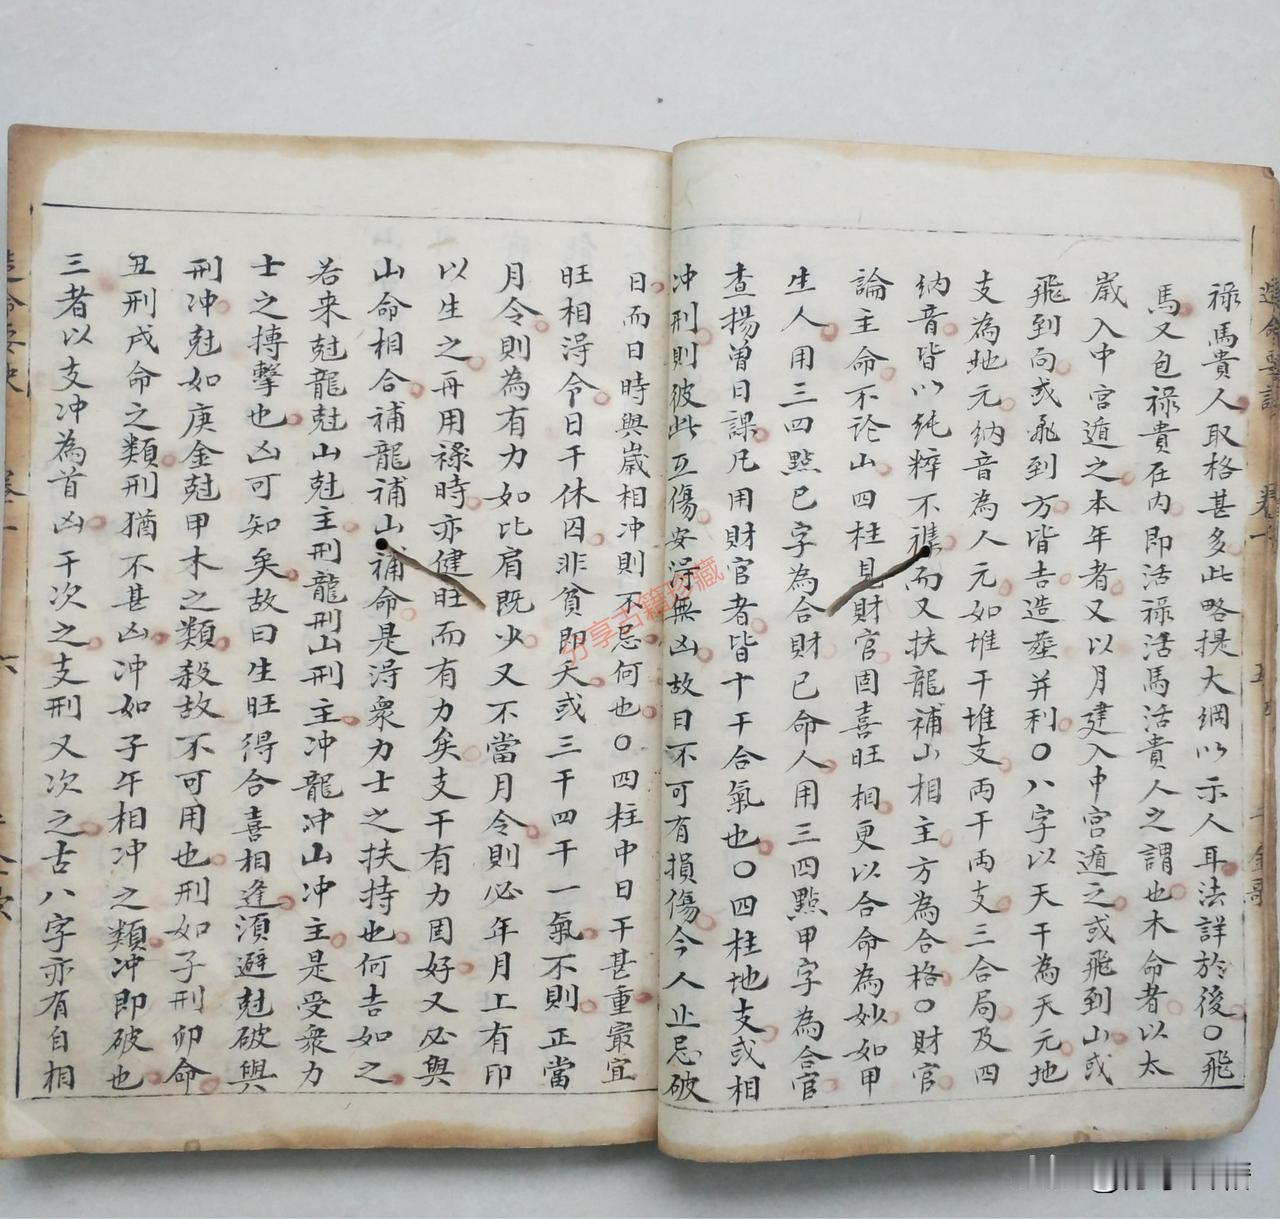 祿馬貴人取格甚多此略提大綱以示人耳法詳於後〇飛
馬又包祿貴在內即活祿活馬活貴人之謂也木命者以太
歲入中宮遁之本年者又以月建入中宮遁之或飛到山或
飛到向或飛到方皆吉造塟并利〇八字以天干為天元地
支為地元納音為人元如堆干堆支両干両支三合局及四
納音皆以純粹不襍而又扶龍補山相主方為合格〇財官
論主命不论山四柱見財官固喜旺相更以合命為妙如甲
生人用三四點巳字為合財已命人用三四點甲字為合官
查揚曾日課凡用財官者皆十干合氣也〇四柱地支或相
冲刑則彼此互傷安淂無凶故曰不可有損傷今人止忌破
日而日時與歲相冲則不忌何也〇四柱中日干甚重冣宜
旺相淂令日干休囚非貧即夭或三干四干一氣不則正當
月令則為有力如比肩既少又不當月令則必年月上有印
以生之再用祿時亦健旺而有力矣支干有力固好又必與
山命相合補龍補山補命是淂衆力士之扶持也何吉如之
若来尅龍尅山尅主刑龍刑山刑主冲龍冲山冲主是受衆力
士之搏擊也凶可知矣故曰生旺得合喜相逢須避尅破與
刑冲尅如庚金尅甲木之類殺故不可用也刑如子刑卯命
丑刑戌命之類刑猶不甚凶冲如子午相冲之類冲即破也
三者以支冲為首凶干次之支刑又次之古八字亦有自相
分享古籍珍藏